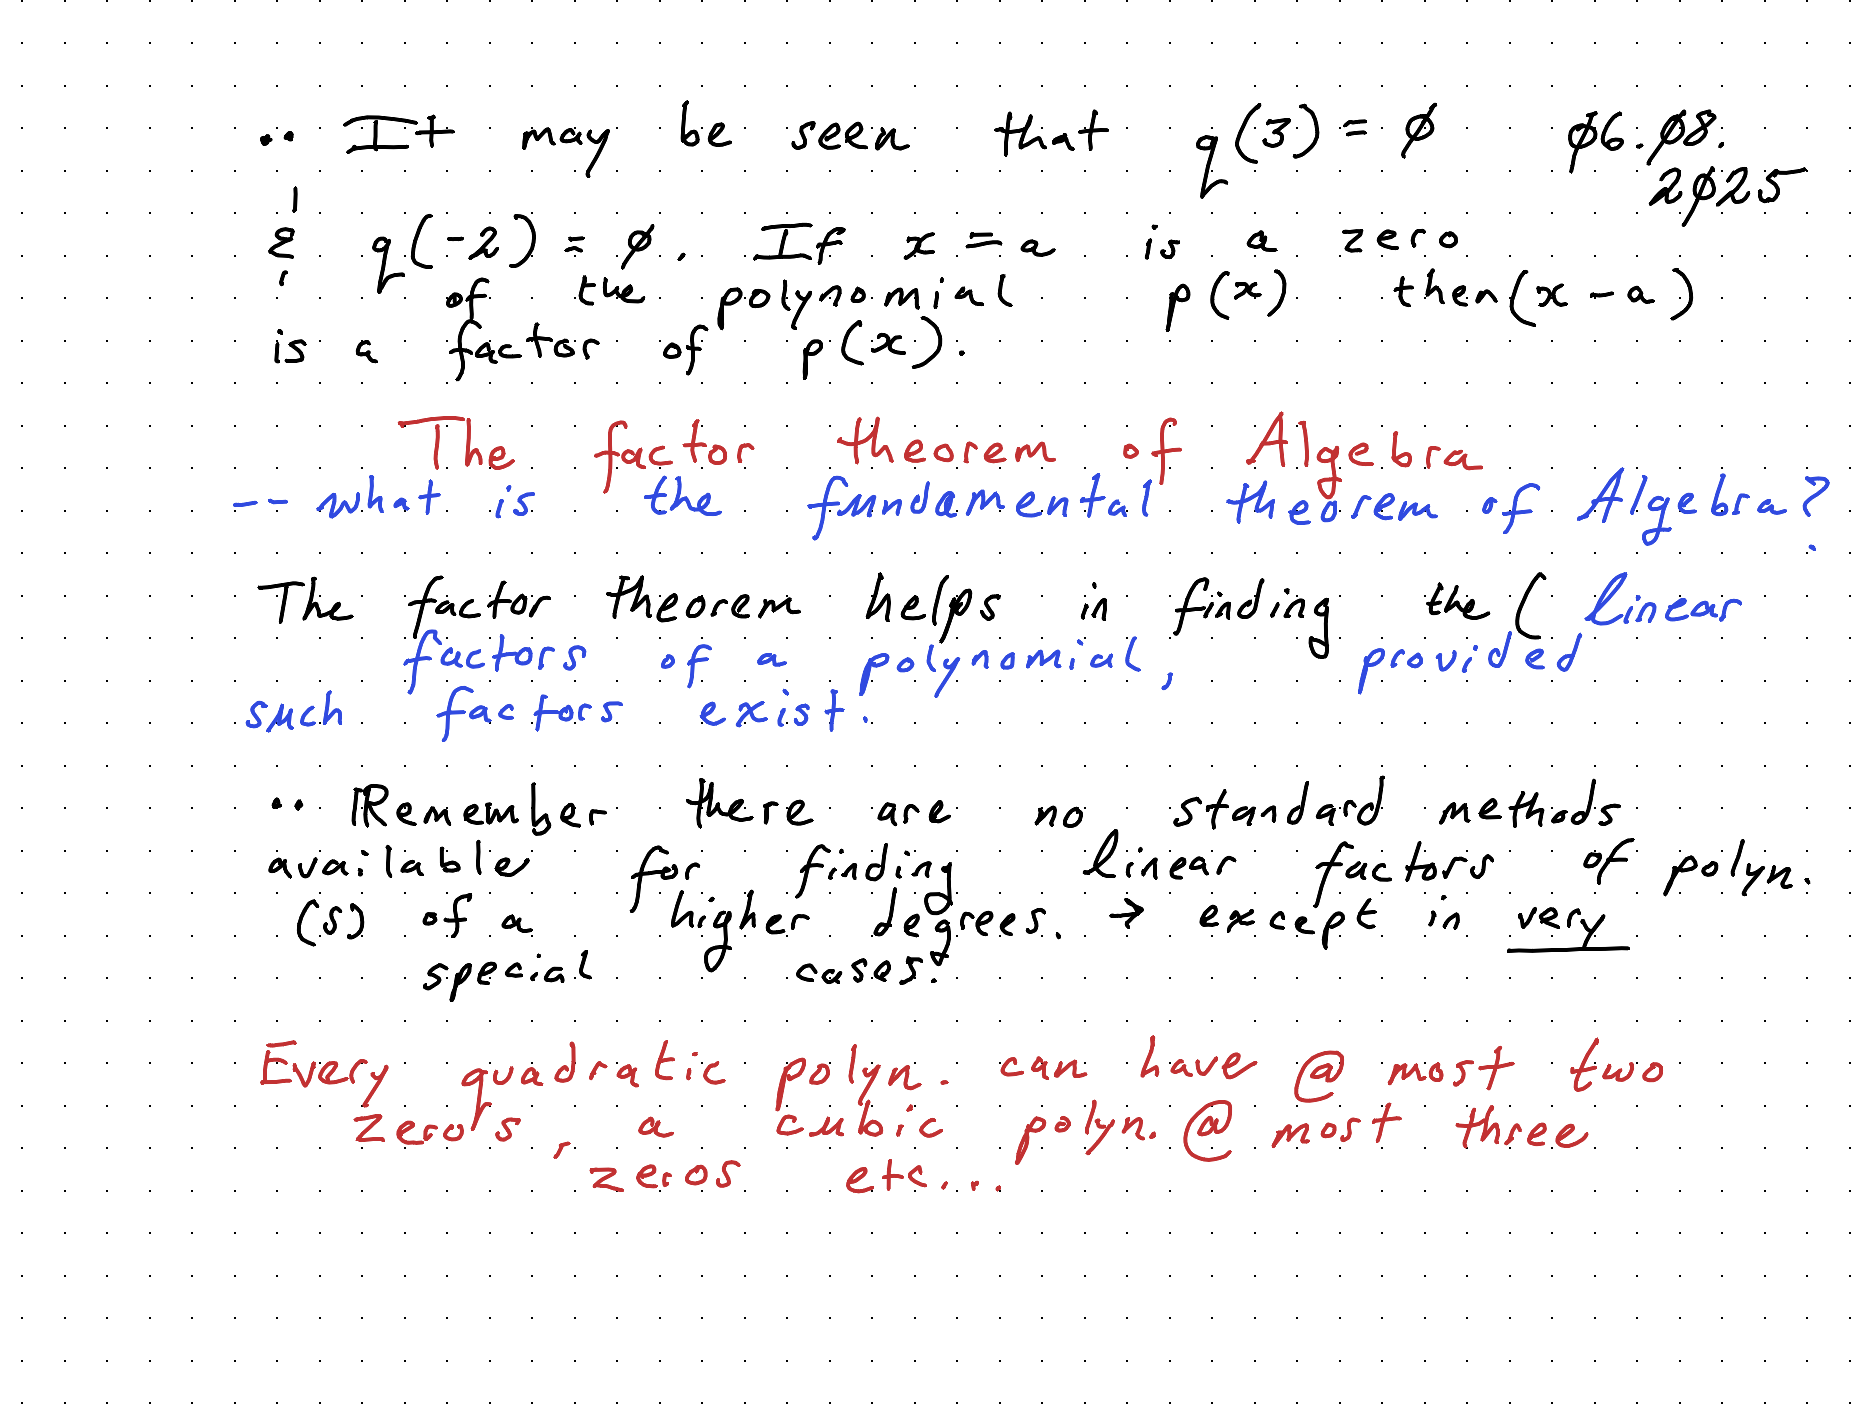 ·· It may be seen that q(3) = ∅ ∅6.∅8.
2∅25
& q(-2) = ∅. If x = a is a zero
of the polynomial p(x) then (x - a)
is a factor of p(x).
The factor theorem of Algebra
-- what is the fundamental theorem of Algebra?
The factor theorem helps in finding the ( linear
factors of a polynomial, provided
such factors exist.
·· Remember there are no standard methods
available for finding linear factors of polyn.
(s) of a higher degrees. → except in very
special cases.
Every quadratic polyn. can have @ most two
zero's, a cubic polyn. @ most three
zeros etc...